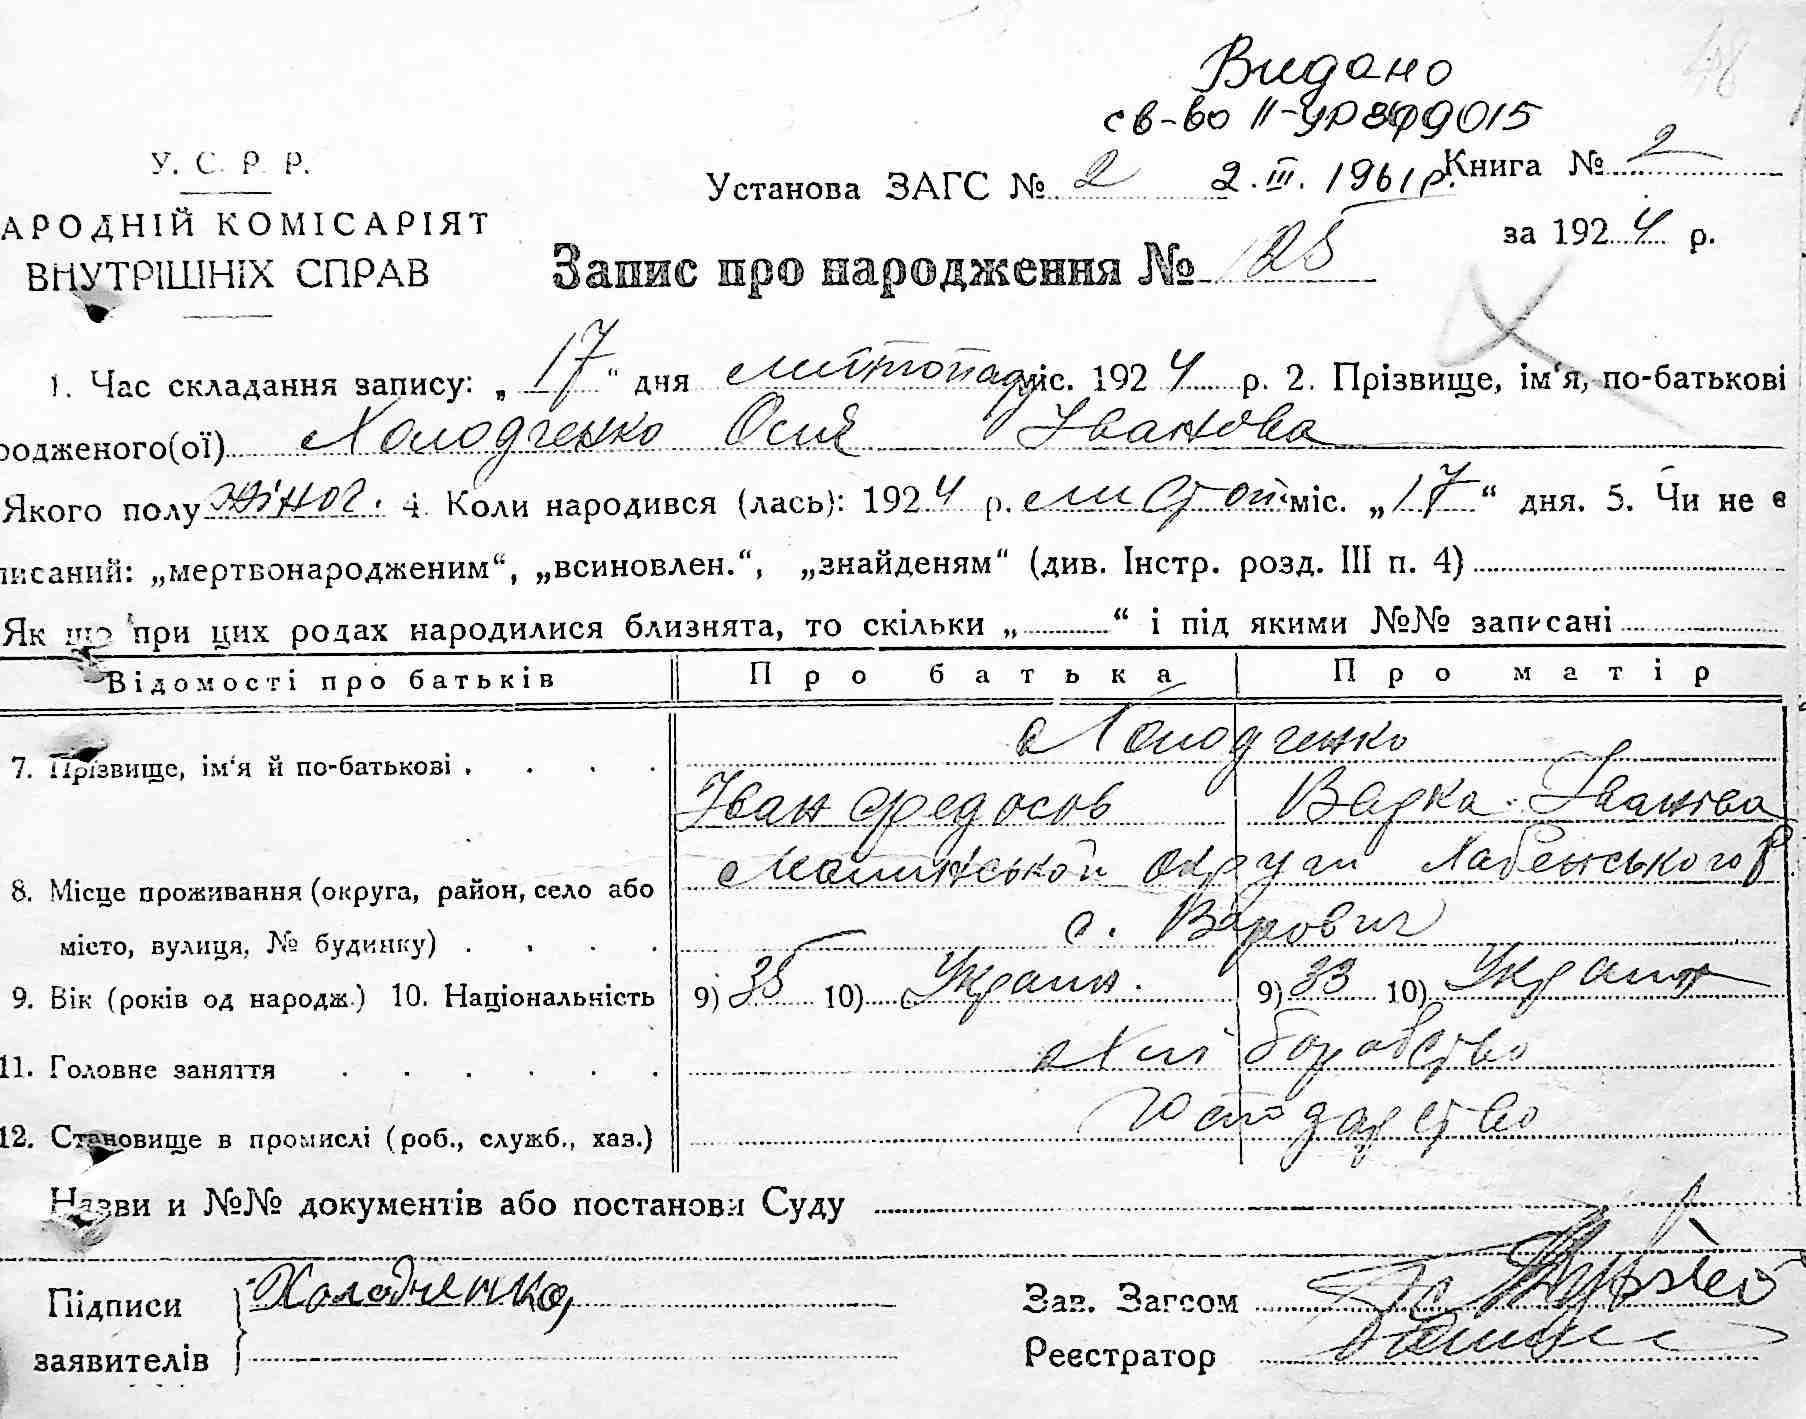 48
Видано
св-во II-УР 899015
У. С. Р. Р.
Установа ЗАГС № 2 2.III.1961р. Книга № 2
АРОДНІЙ КОМІСАРІЯТ
за 1924 р.
ВНУТРІШНІХ СПРАВ
Запис про народження № 125
1. Час складання запису: „17“ дня листопаду міс. 1924 р. 2. Прізвище, ім‘я, по-батькові
родженого(ої) Холодченко Осия Іванова
Якого полу жіноч. 4. Коли народився (лась): 1924 р. листоп. міс. „17“ дня. 5. Чи не є
писаний: „мертвонародженим“, „всиновлен.“, „знайденям“ (див. Інстр. розд. III п. 4)
Як що при цих родах народилися близнята, то скільки „ “ і під якими №№ записані
Відомості про батьків Про батька Про матір
7. Прізвище, ім‘я й по-батькові Холодченко
Іван Федосов Варка Іванова
8. Місце проживання (округа, район, село або Малинськой округи Хабенського р
місто, вулиця, № будинку) с. Варовичі
9. Вік (років од народж.) 10. Національність 9) 35 10) Украин. 9) 33 10) Украин
11. Головне заняття Хліборобство
12. Становище в промислі (роб., служб., хаз.) Господарство
Назви и №№ документів або постанови Суду
Підписи Холодченко, Зав. Загсом
заявителів Реєстратор